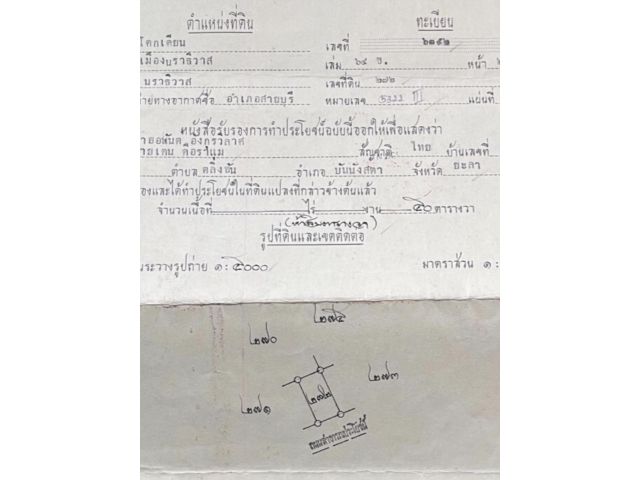 ตำแหน่งที่ดิน
ทะเบียน
โคกเคียน
เลขที่ ๖๑๕๒
เมืองนราธิวาส
เล่ม ๖๒ ข. หน้า
นราธิวาส
เลขที่ดิน ๒๗๒
ถ่ายทางอากาศชื่อ อำเภอสายบุรี
หมายเลข 5322 III แผ่นที่
หนังสือรับรองการทำประโยชน์ฉบับนี้ออกให้เพื่อแสดงว่า
สัญชาติ ไทย บ้านเลขที่
ตำบล ตลิ่งชัน อำเภอ บันนังสตา จังหวัด ยะลา
องและได้ทำประโยชน์ในที่ดินแปลงที่กล่าวข้างต้นแล้ว
จำนวนเนื้อที่ ไร่ งาน ๕๐ ตารางวา
(ห้าสิบตารางวา)
รูปที่ดินและเขตติดต่อ
นระวางรูปถ่าย ๑: ๕๐๐๐
มาตราส่วน ๑:
๒๗๔
๒๗๐
๒๗๓
๒๗๒
๒๗๑